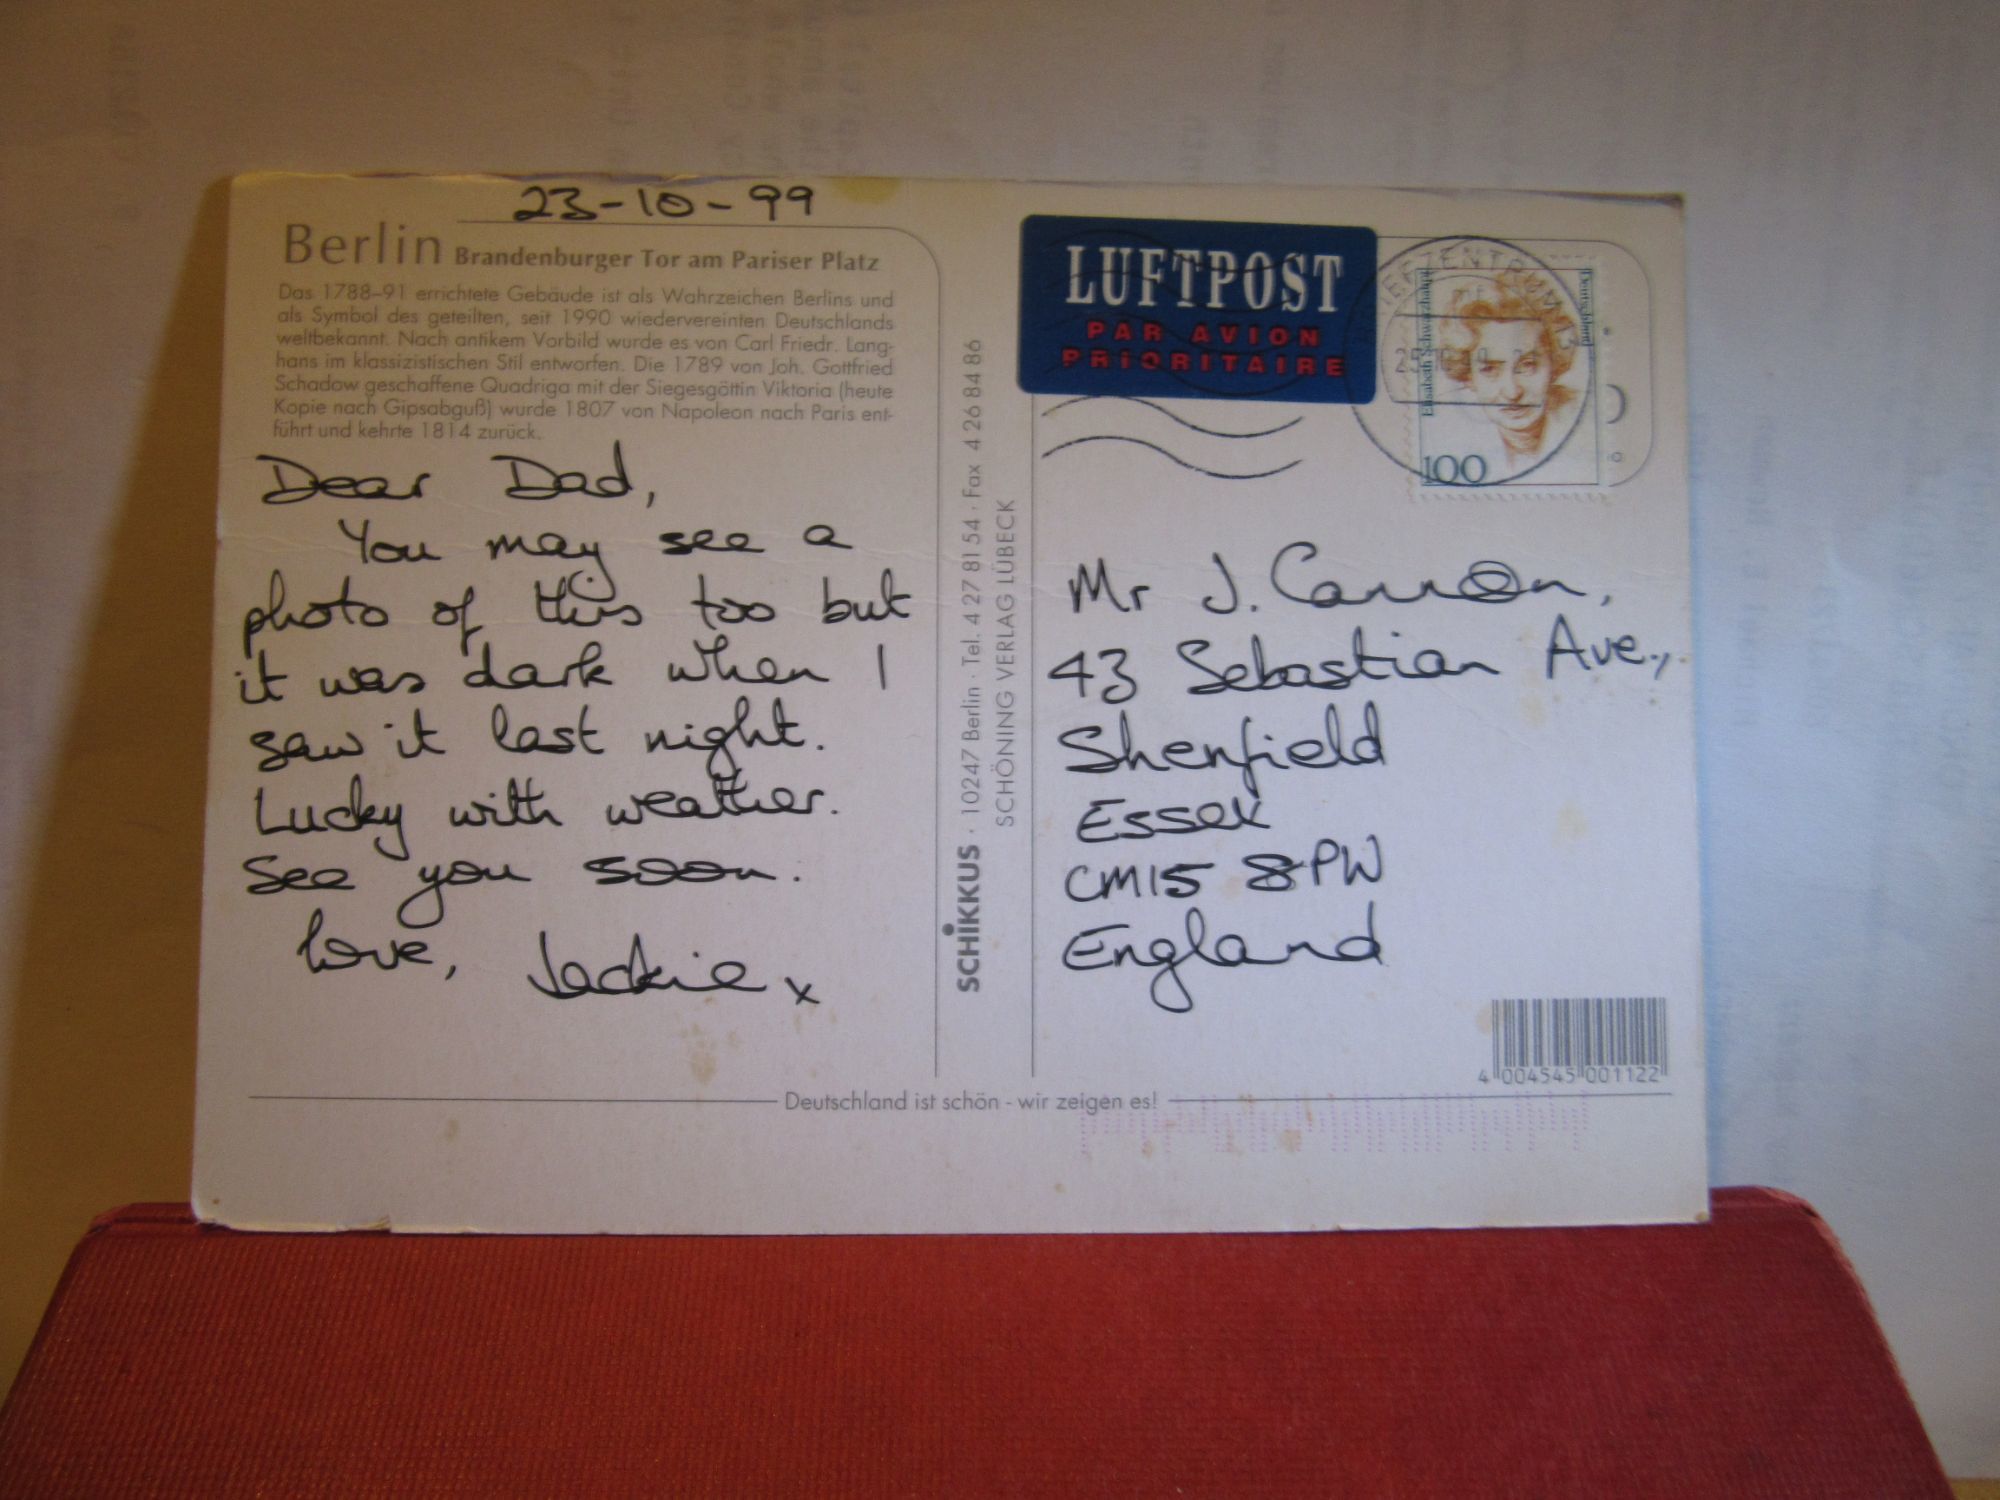 23-10-99
Berlin Brandenburger Tor am Pariser Platz
Das 1788–91 errichtete Gebäude ist als Wahrzeichen Berlins und
als Symbol des geteilten, seit 1990 wiedervereinten Deutschlands
weltbekannt. Nach antikem Vorbild wurde es von Carl Friedr. Lang-
hans im klassizistischen Stil entworfen. Die 1789 von Joh. Gottfried
Schadow geschaffene Quadriga mit der Siegesgöttin Viktoria (heute
Kopie nach Gipsabguß) wurde 1807 von Napoleon nach Paris ent-
führt und kehrte 1814 zurück.
Dear Dad,
You may see a
photo of this too but
it was dark when I
saw it last night.
Lucky with weather.
See you soon.
love, Jackie x
SCHIKKUS · 10247 Berlin · Tel. 4 27 81 54 · Fax 4 26 84 86
SCHÖNING VERLAG LÜBECK
LUFTPOST
PAR AVION
PRIORITAIRE
BRIEFZENTRUM 13
Deutschland
Elisabeth Schwarzhaupt
100
Mr J. Cannon,
43 Sebastian Ave.,
Shenfield
Essex
CM15 8PW
England
4 004545 001122
Deutschland ist schön - wir zeigen es!